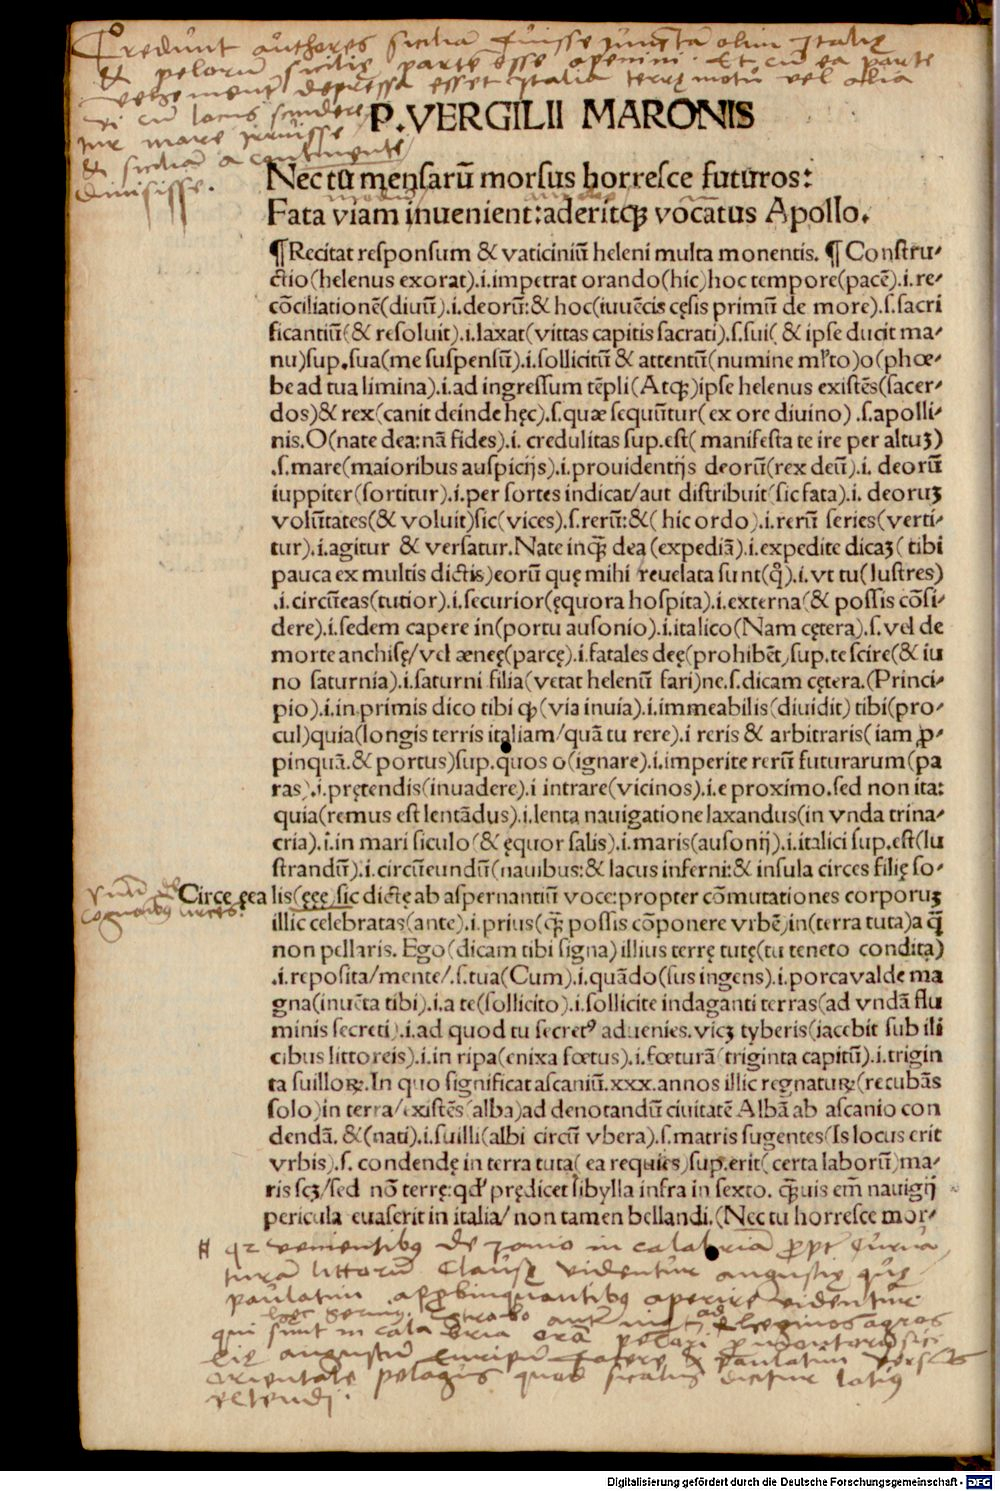 Credunt authores siciliã fuisse iunctã olim Italię
& pelorũ sicilię parte esse apenini. Et cũ ea parte
vehementi depressa esset Italia terrę motu vel alia
vi cũ locus scinderetur
mare irruisse
& siciliã a continente
diuisisse.
P.VERGILII MARONIS
Nec tu mensarũ morsus horresce futuros:
Fata viam inuenient:aderitqꝫ vocatus Apollo.
¶Recitat responsum & vaticiniũ heleni multa monentis. ¶Constru-
ctio(helenus exorat).i.impetrat orando(hic)hoc tempore(pacẽ).i.re-
cõciliationẽ(diuũ).i.deorũ:& hoc(iuuẽcis cęsis primũ de more).s.sacri
ficantiũ(& resoluit).i.laxat(vittas capitis sacrati).s.sui( & ipse ducit ma-
nu)sup.sua(me suspensũ).i.sollicitũ & attentũ(numine ml̃to)o(phœ-
be ad tua limina).i.ad ingressum tẽpli(Atqꝫ)ipse helenus existẽs(sacer-
dos)& rex(canit deinde hęc).s.quæ sequũtur(ex ore diuino).s.apolli-
nis.O(nate dea:nã fides).i. credulitas sup.est( manifesta te ire per altuꝫ)
.s.mare(maioribus auspicijs).i.prouidentijs deorũ(rex deũ).i. deorũ
iuppiter(sortitur).i.per sortes indicat/aut distribuit(sic fata).i. deoruꝫ
volũtates(& voluit)sic(vices).s.rerũ:&( hic ordo).i.rerũ series(verti-
tur).i.agitur & versatur.Nate inqꝫ̃ dea (expediã).i.expedite dicaꝫ( tibi
pauca ex multis dictis)eorũ quę mihi reuelata sunt(qͦ).i.vt tu(lustres)
.i.circũeas(tutior).i.securior(ęquora hospita).i.externa(& possis cõsi-
dere).i.sedem capere in(portu ausonio).i.italico(Nam cętera).s.vel de
morte anchisę/vel æneę(parcę).i.fatales deę(prohibẽt)sup.te scire(& iu
no saturnia).i.saturni filia(vetat helenũ fari)ne.s.dicam cętera.(Princi-
pio).i.in primis dico tibi qꝫ (via inuia).i.immeabilis(diuidit) tibi(pro-
cul)quia(longis terris italiam/quã tu rere).i reris & arbitraris(iam ꝓ-
pinquã.& portus)sup.quos o(ignare).i.imperite rerũ futurarum(pa
ras).i.prętendis(inuadere).i intrare(vicinos).i.e proximo.sed non ita:
quia(remus est lentãdus).i.lenta nauigatione laxandus(in vnda trina-
cria).i.in mari siculo(& ęquor salis).i.maris(ausonij).i.italici sup.est(lu
strandũ).i.circũeundũ(nauibus:& lacus inferni:& insula circes filię so-
Circe ęea lis(ęęę)sic dictę ab aspernantiũ voce:propter cõmutationes corporuꝫ
illic celebratas(ante).i.prius(qꝫ̃ possis cõponere vrbẽ)in(terra tuta)a q̃
non pellaris. Ego(dicam tibi signa) illius terrę tutę(tu teneto condita)
.i.reposita/mente/.s.tua(Cum).i.quãdo(sus ingens).i.porca valde ma
gna(inuẽta tibi).i.a te(sollicito).i.sollicite indaganti terras(ad vndã flu
minis secreti).i.ad quod tu secretꝰ aduenies.vicꝫ tyberis(iacebit sub ili
cibus littoreis).i.in ripa(enixa fœtus).i.fœturã(triginta capitũ).i.trigin
ta suilloꝝ.In quo significat ascaniũ.xxx.annos illic regnatuꝝ(recubãs
solo)in terra/existẽs(alba)ad denotandũ ciuitatẽ Albã ab ascanio con
dendã. &(nati).i.suilli(albi circũ vbera).s.matris sugentes(Is locus erit
vrbis).s. condendę in terra tuta( ea requies)sup.erit( certa laborũ)ma-
ris scꝫ/sed nõ terrę:qđ prędicet sibylla infra in sexto. qꝫ̃uis em̃ nauigij
pericula euaserit in italia/ non tamen bellandi.(Nec tu horresce mor-
venientibꝰ de Ionio in calabriam ꝓpter curua
turam littorũ clausę videntur angustię quę
paulatim appropinquantibꝰ aperire videntur.
orientale pelagus quod siculus dicitur latiꝰ
extendi.